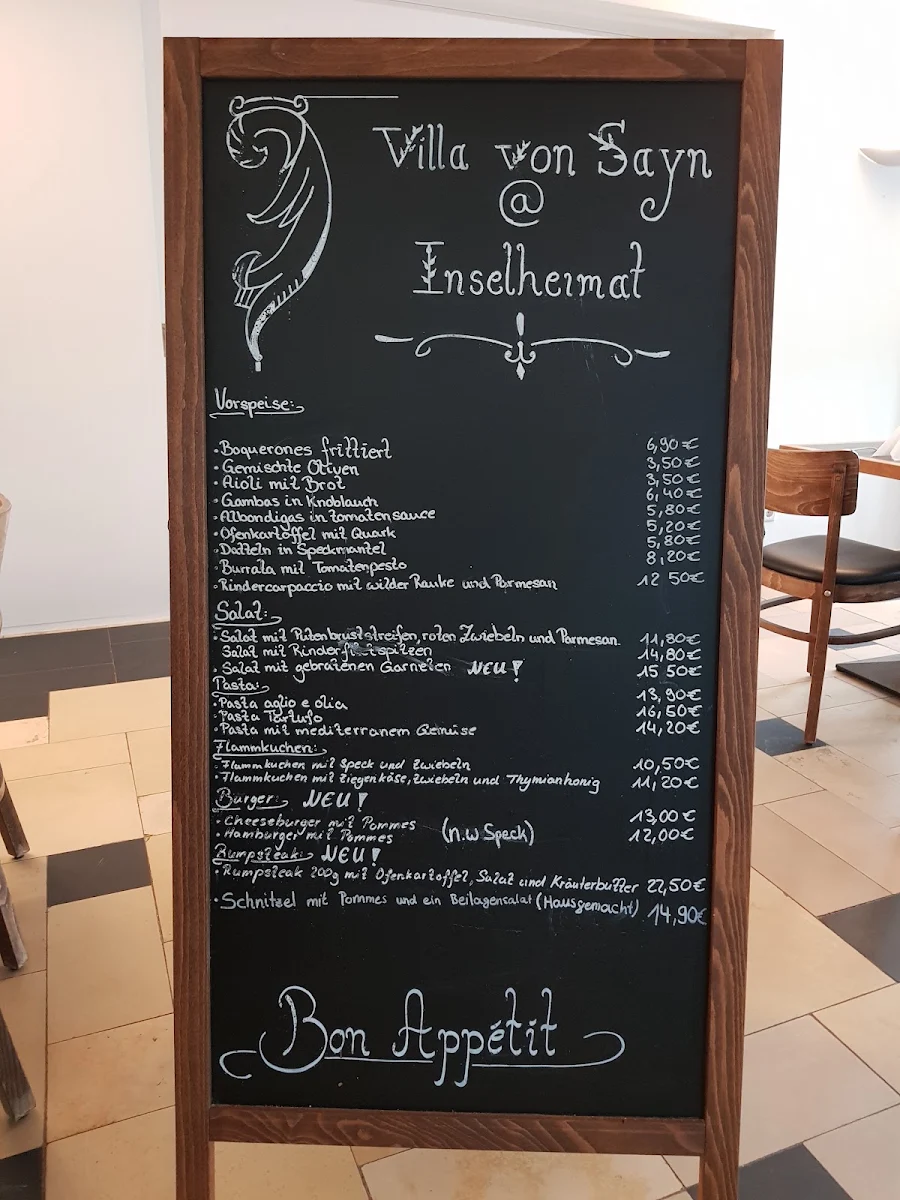 Villa von Sayn
@
Inselheimat
Vorspeise:
· Boquerones frittiert 6,90€
· Gemischte Oliven 3,50€
· Aioli mit Brot 3,50€
· Gambas in Knoblauch 6,40€
· Albondigas in tomatensauce 5,80€
· Ofenkartoffel mit Quark 5,20€
· Datteln in Speckmantel 5,80€
· Burrata mit Tomatenpesto 8,20€
· Rindercarpaccio mit wilder Rauke und Parmesan 12 50€
Salat:
· Salat mit Putenbruststreifen, roten Zwiebeln und Parmesan 11,80€
· Salat mit Rinderfiletspitzen 14,80€
· Salat mit gebratenen Garnelen NEU! 15 50€
Pasta:
· Pasta aglio e olia 13,90€
· Pasta Tartufo 16,50€
· Pasta mit mediterranem Gemüse 14,20€
Flammkuchen:
· Flammkuchen mit Speck und Zwiebeln 10,50€
· Flammkuchen mit Ziegenkäse, Zwiebeln und Thymianhonig 11,20€
Burger: NEU!
· Cheeseburger mit Pommes 13,00€
· Hamburger mit Pommes (n.w Speck) 12,00€
Rumpsteak: NEU!
· Rumpsteak 200g mit Ofenkartoffel, Salat und Kräuterbutter 22,50€
· Schnitzel mit Pommes und ein Beilagensalat (Hausgemacht) 14,90€
Bon Appétit